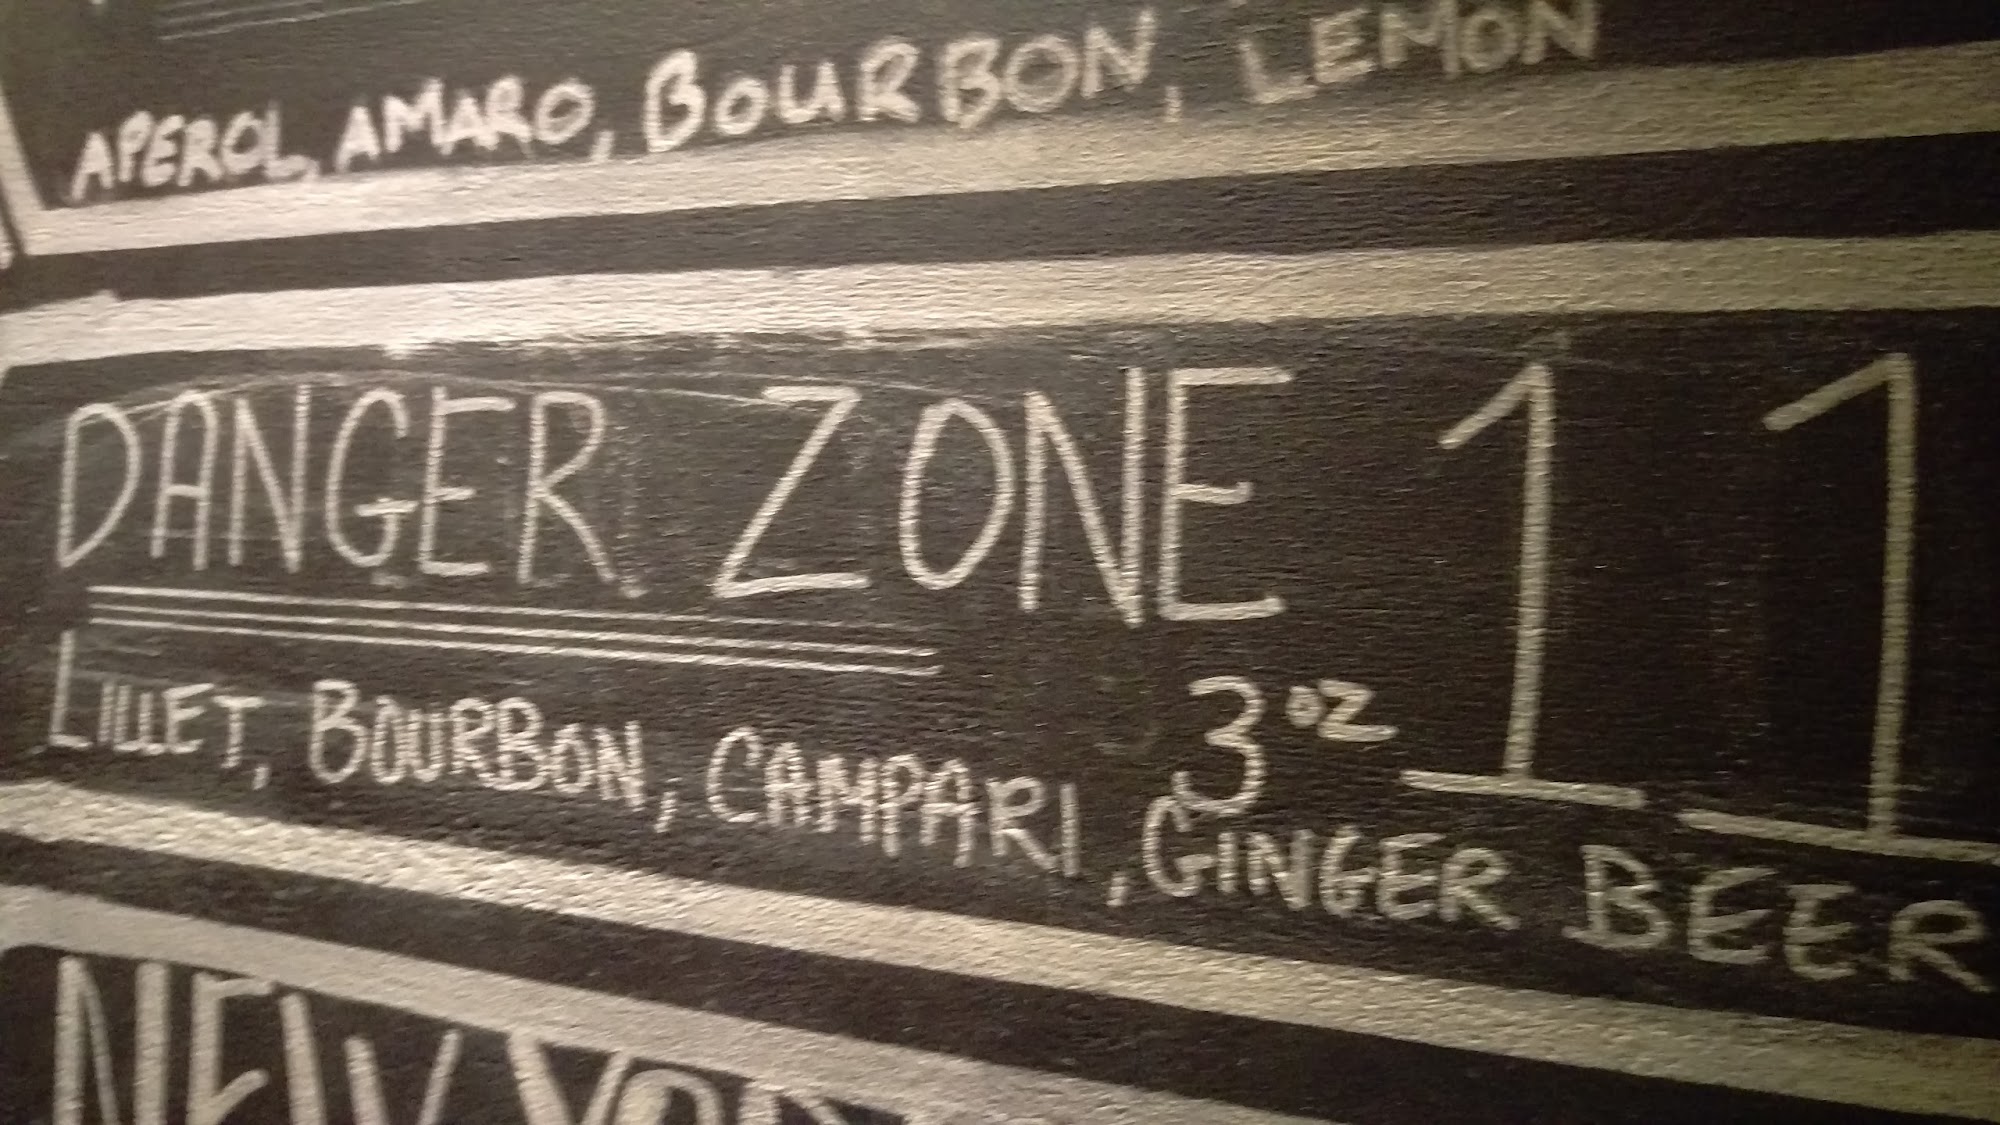 APEROL, AMARO, BOURBON, LEMON
DANGER ZONE 11
3 oz
LILLET, BOURBON, CAMPARI, GINGER BEER
NEW YORK